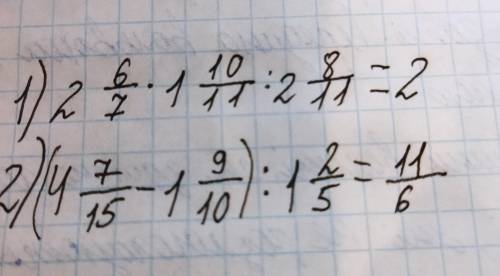 1) 2 6/7 · 1 10/11 : 2 8/11 = 2
2) (4 7/15 - 1 9/10) : 1 2/5 = 11/6